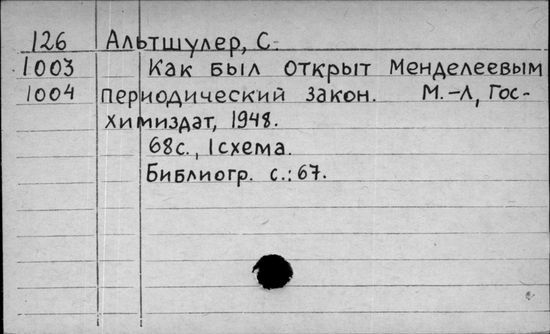 126 Альтшулер, С.
1003 Как был открыт Менделеевым
1004 периодический закон. М.-Л, Гос-
химиздат, 1948.
68с., 1 схема.
Библиогр. с.: 67.